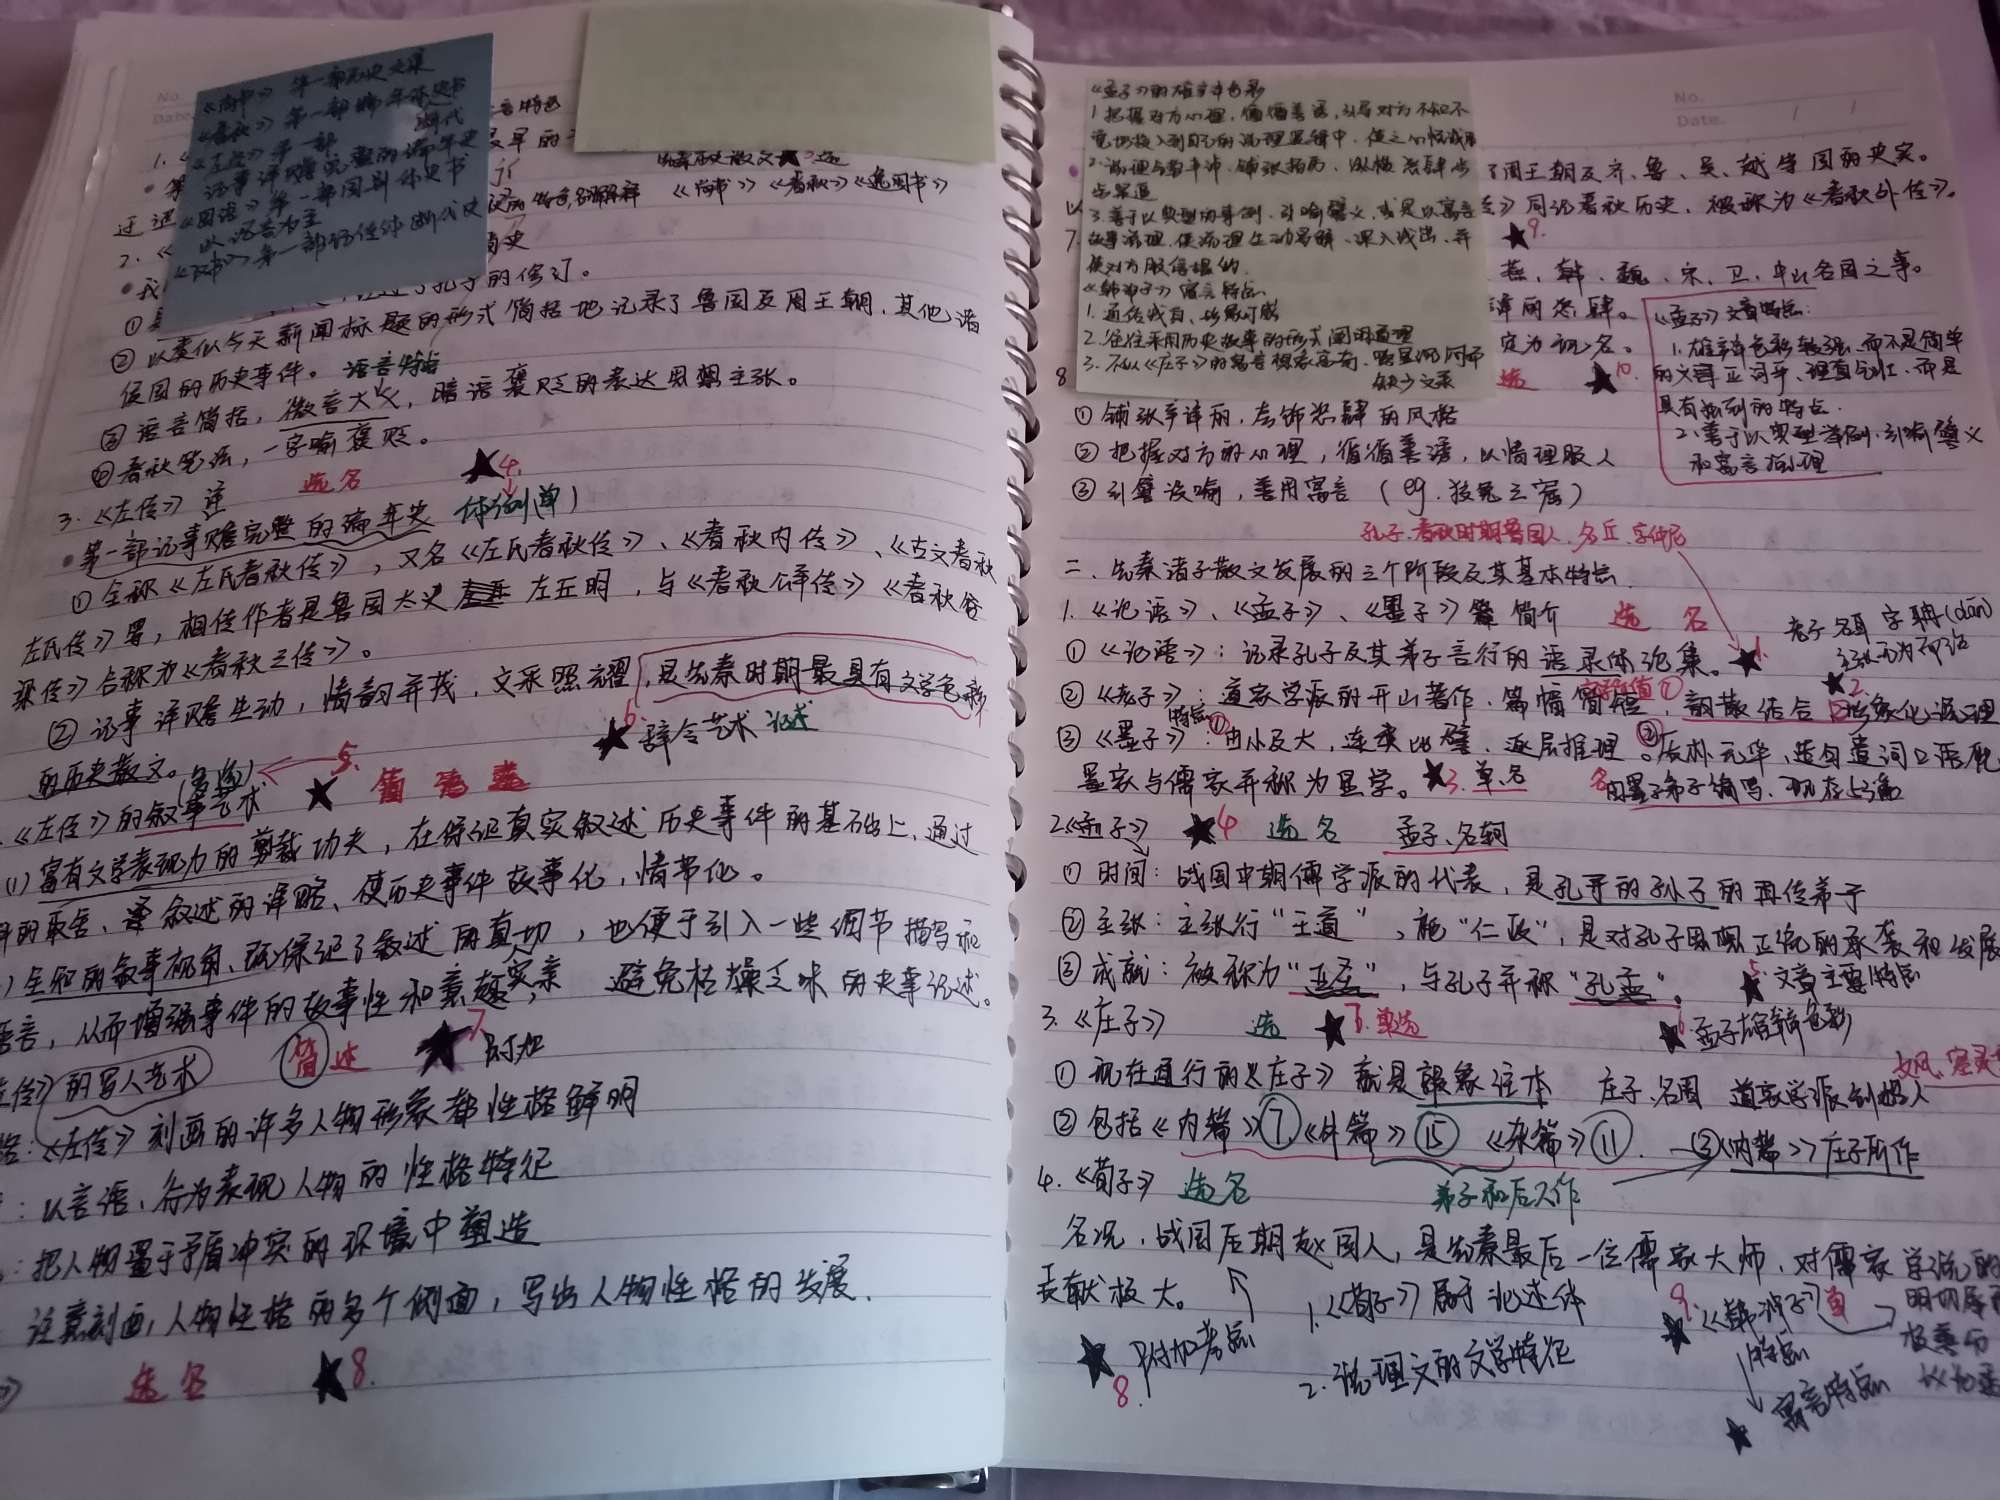 《尚书》 第一部历史文集
《春秋》第一部编年体史书
《左传》第一部
记事详赡完整的编年史
《国语》第一部国别体史书
以记言为主
《汉书》第一部纪传体断代史
《尚书》《春秋》《逸周书》
孔子的修订。
② 以类似今天新闻标题的形式简括地记录了鲁国及周王朝、其他诸
侯国的历史事件。 语言特点
③ 语言简括，微言大义，暗语褒贬的表达思想主张。
④春秋笔法，一字喻褒贬。
3.《左传》 选名 ★4.
第一部记事赡完整的编年史 体例(单)
①全称《左氏春秋传》，又名《左氏春秋传》、《春秋内传》、《古文春秋
左氏传》等，相传作者是鲁国太史 左丘明，与《春秋公羊传》《春秋谷
梁传》合称为《春秋三传》。
② 记事详赡生动，情韵并茂，文采照耀，是先秦时期最具有文学色彩
的历史散文。
★6. 辞令艺术 论述
《左传》的叙事艺术 ★5.
(1)富有文学表现力的剪裁功夫，在保证真实叙述历史事件的基础上，通过
的取舍、叙述的详略、使历史事件故事化，情节化。
全知的叙事视角、既保证了叙述的真切，也便于引入一些细节描写和
语言，从而增强事件的故事性和意趣，避免枯燥乏味的史事记述。
的写人艺术 简述 ★7. 附加
《左传》刻画的许多人物形象都性格鲜明
：以言语、行为表现人物的性格特征
：把人物置于矛盾冲突的环境中塑造
注意刻画人物性格的多个侧面，写出人物性格的发展.
选名 ★8.
《孟子》的雄辩色彩
1.把握对方心理，循循善诱，引导对方不知不
觉地投入到自己的说理逻辑中，使之心悦诚服
3.善于以典型的事例、引喻譬义，或是以寓言
故事说理，使说理生动易解、深入浅出、并
使对方服信.
《韩非子》寓言特点
1.通俗浅白、
2.往往采用历史故事的形式阐明道理
3.不似《庄子》的寓言想象
缺少文采
了周王朝及齐、鲁、吴、越等国的史实。
同记春秋历史，被称为《春秋外传》。
★9.
燕、韩、魏、宋、卫、中山各国之事。
定为现名。
选 ★10.
《孟子》文章特点：
1.雄辩色彩较强，而不是简单
的义正词严、理直气壮、而是
具有独到的特点.
2.善于以典型举例、引喻譬义
和寓言说理
① 铺张辛详丽，夸饰恣肆的风格
② 把握对方的心理，循循善诱，以情理服人
③ 引譬设喻，善用寓言 (eg.狡兔三窟)
孔子、春秋时期鲁国人、名丘、字仲尼
二、先秦诸子散文发展的三个阶段及其基本特点
1.《论语》、《孟子》、《墨子》简介 选 名
老子 名耳 字聃(dān)
主张无为而治
①《论语》：记录孔子及其弟子言行的语录体论集。★1.
②《老子》：道家学派的开山著作、篇幅简短，韵散结合 形象化说理 ★2.
③《墨子》：由小及大，连类比譬、逐层推理。质朴无华，造句遣词口语化
墨家与儒家并称为显学。★3.单.名
由墨子弟子编写、现存53篇
2.《孟子》 ★4 选 名 孟子、名轲
① 时间：战国中期儒学派的代表，是孔子的孙子的再传弟子
② 主张：主张行“王道”，施“仁政”，是对孔子思想正统的承袭和发展
③ 成就：被称为“亚圣”，与孔子并称“孔孟”。★5.文章主要特点
★6.孟子雄辩色彩
3.《庄子》 选 ★ 单选
① 现在通行的《庄子》就是郭象注本 庄子、名周 道家学派创始人
② 包括《内篇》⑦《外篇》⑮ 《杂篇》⑪. ③《内篇》庄子所作
弟子和后人作
4.《荀子》 选名
名况，战国后期赵国人，是先秦最后一位儒家大师，对儒家学说的
贡献极大。
★8. 附加考点
1.《荀子》属于论述体
2.说理文的文学特征
9.★《韩非子》 单
特点
★ 寓言特点